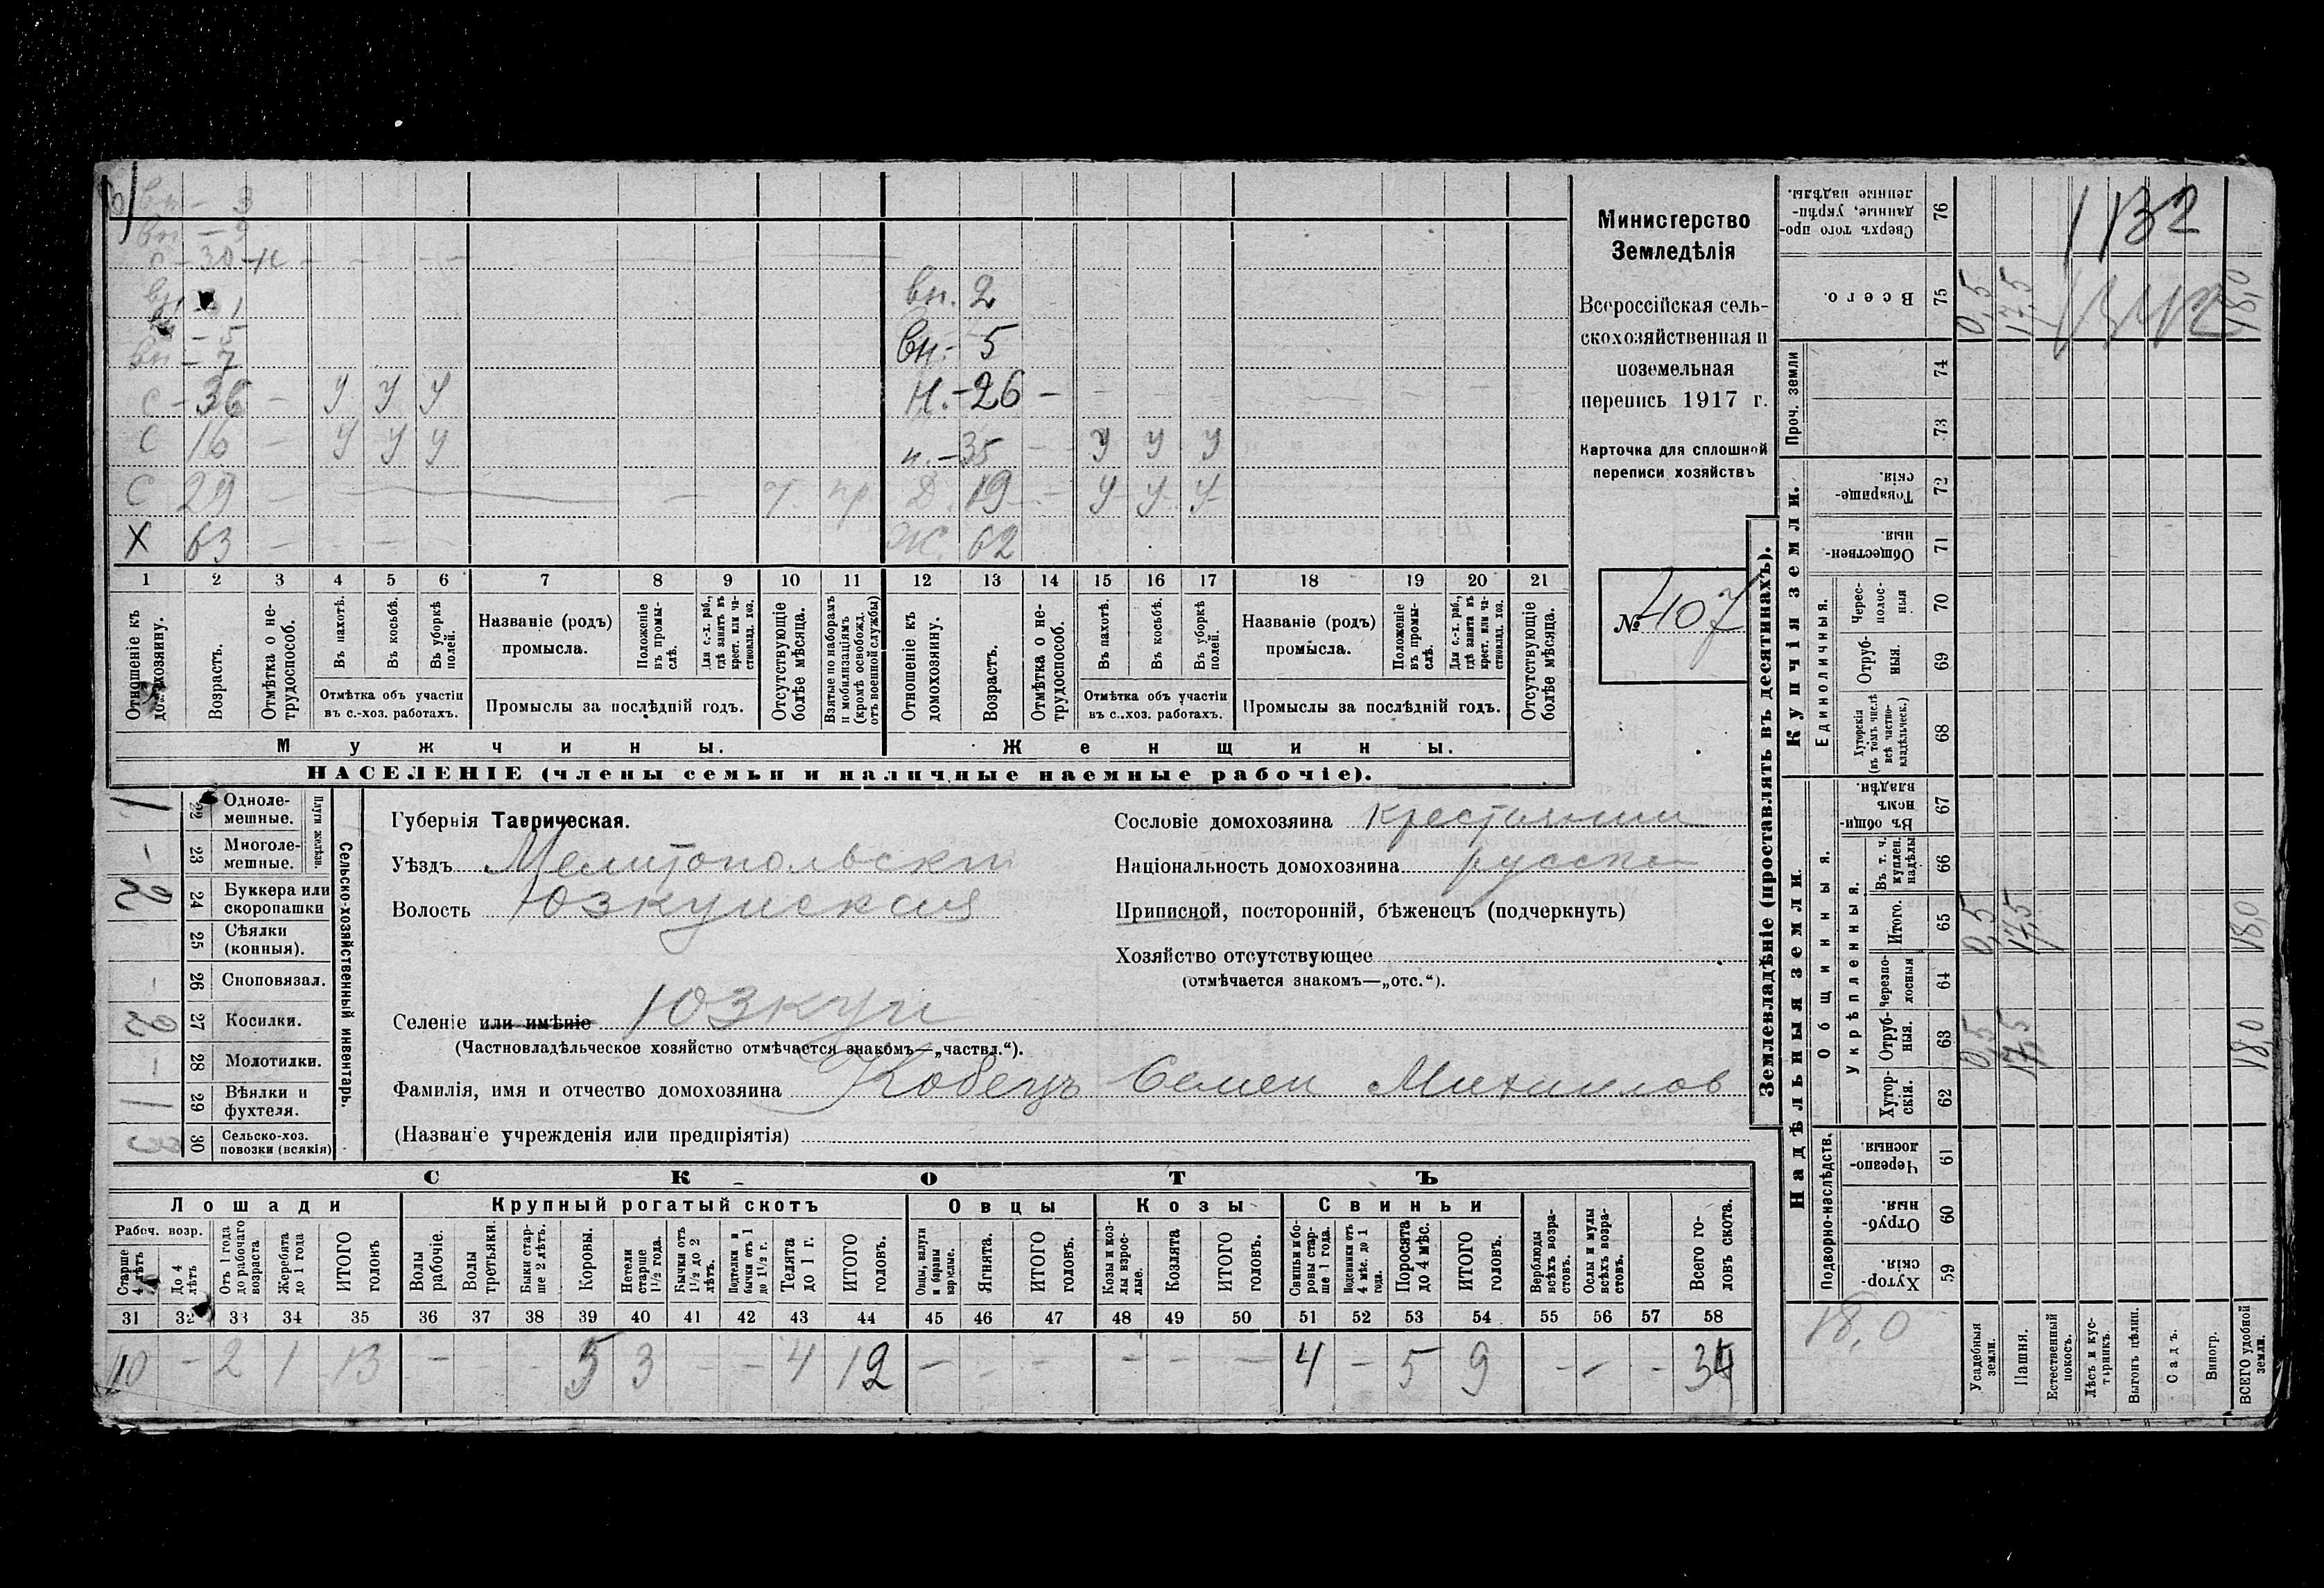 вн - 3
вн - 9
с - 30 - н -
вн. 2
- 5
вн - 7
вн. - 5
с - 36 - У У У
н. - 26 -
с 16 - У У У
н. - 35 - У У У
с 29 -
Д. 19 - У У У
Х 63 -
Ж. 62
1 2 3 4 5 6 7 8 9 10 11 12 13 14 15 16 17 18 19 20 21
Отношеніе къ домохозяину.
Возрастъ.
Отмѣтка о нетрудоспособ.
Въ пахотѣ.
Въ косьбѣ.
Въ уборкѣ полей.
Отмѣтка объ участіи въ с.-хоз. работахъ.
Названіе (родъ) промысла.
Положеніе въ промыслѣ.
Для с.-х. раб., гдѣ занятъ въ крест. или частновлад. хоз.
Промыслы за послѣдній годъ.
Отсутствующіе болѣе мѣсяца.
Взятые по наборамъ и мобилизаціямъ (кромѣ освобожд. отъ военной службы)
Отношеніе къ домохозяину.
Возрастъ.
Отмѣтка о нетрудоспособ.
Въ пахотѣ.
Въ косьбѣ.
Въ уборкѣ полей.
Отмѣтка объ участіи въ с.-хоз. работахъ.
Названіе (родъ) промысла.
Положеніе въ промыслѣ.
Для с.-х. раб., гдѣ занята въ крест. или частновлад. хоз.
Промыслы за послѣдній годъ.
Отсутствующіе болѣе мѣсяца.
Мужчины.
Женщины.
НАСЕЛЕНІЕ (члены семьи и наличные наемные рабочіе).
Министерство
Земледѣлія
Всероссійская сель-
скохозяйственная и
поземельная
перепись 1917 г.
Карточка для сплошной
переписи хозяйствъ
№ 407
Сельско-хозяйственный инвентарь.
Плуги желѣзн.
1 22 Однолемешные.
- 23 Многолемешные.
2 24 Буккера или скоропашки
25 Сѣялки (конныя).
- 26 Сноповязал.
2 27 Косилки.
- 28 Молотилки.
1 29 Вѣялки и фухтеля.
3 30 Сельско-хоз. повозки (всякія)
Губернія Таврическая.
Уѣздъ Мелитопольскій
Волость Юзкуйская
Селеніе или имѣніе Юзкуи
(Частновладѣльческое хозяйство отмѣчается знакомъ—„частвл.“).
Фамилія, имя и отчество домохозяина Кобецъ Семен Михаилов
(Названіе учрежденія или предпріятія)
Сословіе домохозяина крестьянин
Національность домохозяина русск
Приписной, посторонній, бѣженецъ (подчеркнуть)
Хозяйство отсутствующее
(отмѣчается знакомъ—„отс.“).
СКОТЪ
Лошади
Крупный рогатый скотъ
Овцы
Козы
Свиньи
Рабоч. возр.
Старше 4 лѣтъ
До 4 лѣтъ
Отъ 1 года до рабочаго возраста
Жеребята до 1 года
ИТОГО головъ
Волы рабочіе.
Волы третьяки.
Быки старше 2 лѣтъ.
Коровы.
Нетели старше 1½ года.
Бычки отъ 1½ до 2 лѣтъ.
Подтелки и бычки отъ 1 до 1½ г.
Телята до 1 г.
ИТОГО головъ.
Овцы, валухи и бараны взрослые.
Ягнята.
ИТОГО головъ.
Козы и козлы взрослые.
Козлята
ИТОГО головъ.
Свиньи и боровы старше 1 года.
Подсвинки отъ 4 мѣс. до 1 года.
Поросята до 4 мѣс.
ИТОГО головъ.
Верблюды всѣхъ возрастовъ.
Ослы и мулы всѣхъ возрастовъ.
Всего головъ скота.
31 32 33 34 35 36 37 38 39 40 41 42 43 44 45 46 47 48 49 50 51 52 53 54 55 56 57 58
10 - 2 1 13 - - 5 3 - - 4 12 - - - - - - 4 - 5 9 - - - 34
Землевладѣніе (проставлять въ десятинахъ).
Купчія земли.
Надѣльныя земли.
Сверхъ того проданные, укрѣпленные надѣлы. 76
1132
Всего. 75 0,5 17,5 18,0
Проч. земли 74 73
Товарищескія. 72
Общественныя. 71
Единоличныя.
Чересполосныя 70
Отрубныя. 69
Хуторскія (въ томъ числѣ всѣ частновладѣльческ.) 68
Общинныя.
Въ общинномъ владѣн. 67
Укрѣпленныя.
Въ т. ч. куплен. надѣлы 66
Итого. 65 0,5 17,5 18,0
Черезполосныя 64
Отрубныя. 63 0,5 17,5 18,0
Хуторскія. 62
Подворно-наслѣдств.
Черезполосныя. 61
Отрубныя. 60
Хуторскія. 59
18,0
Усадебныя земли.
Пашня.
Естественный покосъ.
Лѣсъ и кустарникъ.
Выгонъ цѣлин.
Садъ.
Виногр.
ВСЕГО удобной земли.